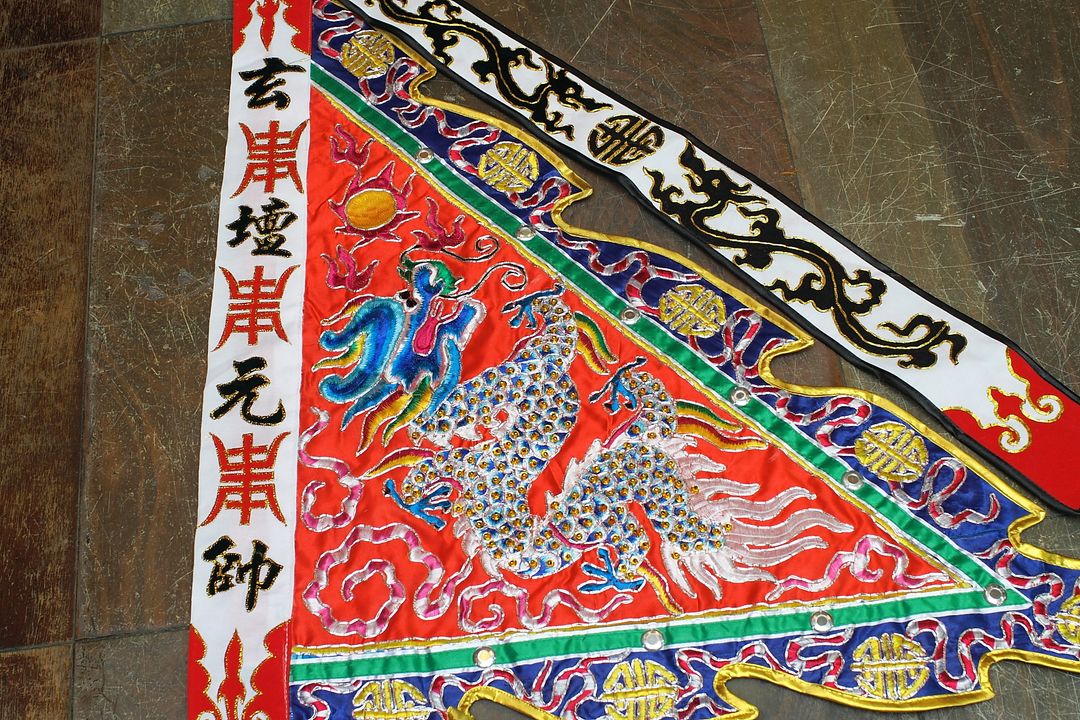 玄壇元帥